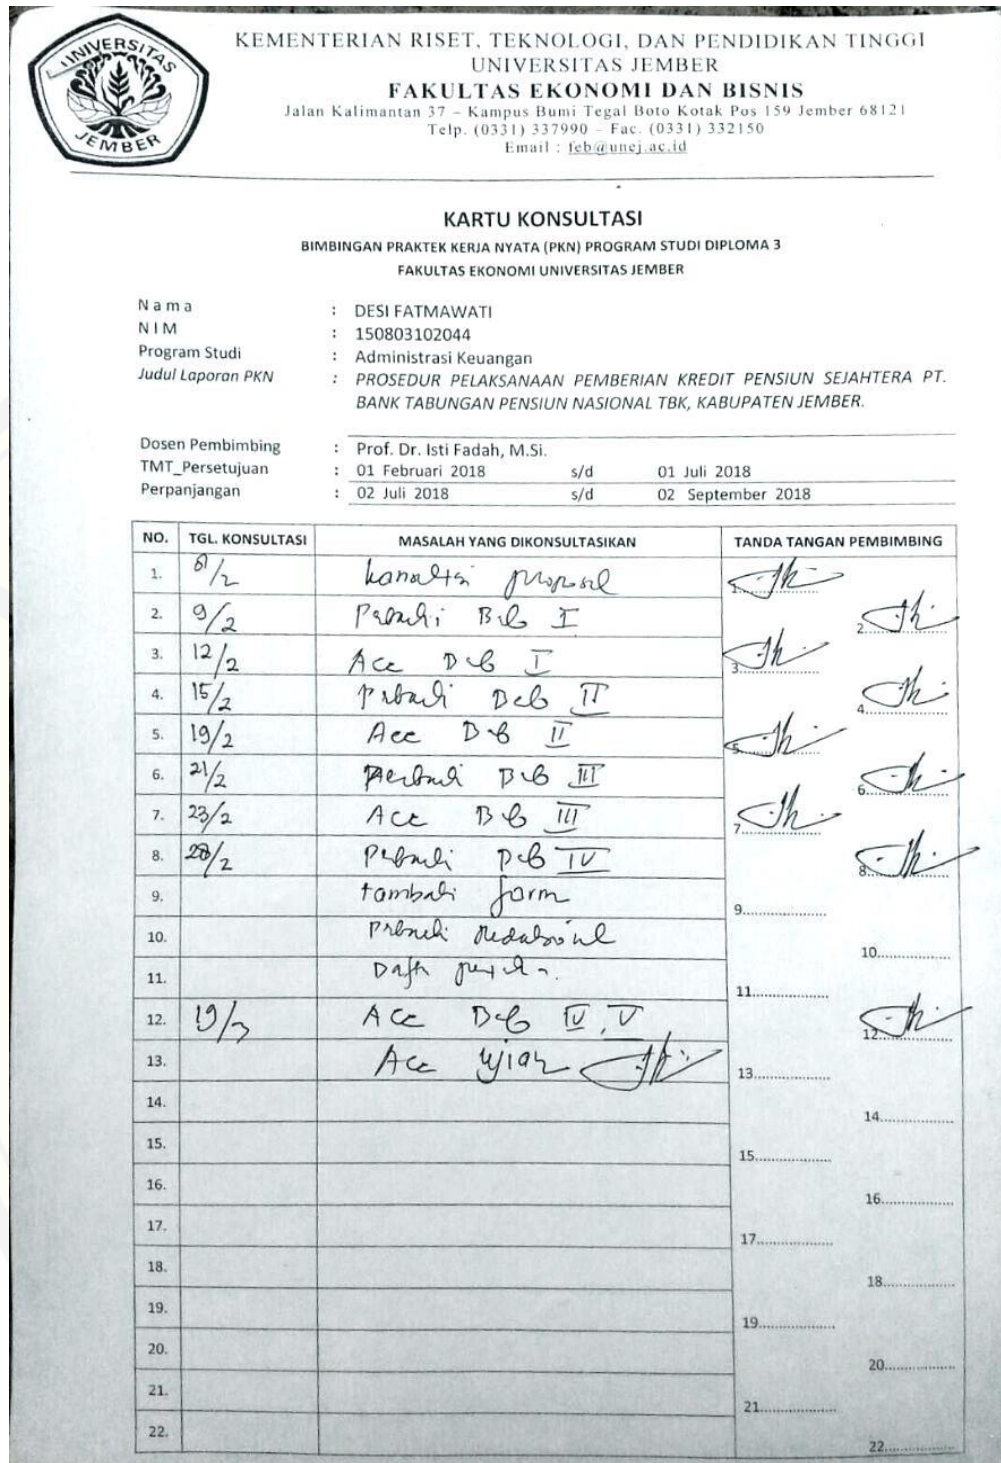 UNIVERSITAS
JEMBER
KEMENTERIAN RISET, TEKNOLOGI, DAN PENDIDIKAN TINGGI
UNIVERSITAS JEMBER
FAKULTAS EKONOMI DAN BISNIS
Jalan Kalimantan 37 – Kampus Bumi Tegal Boto Kotak Pos 159 Jember 68121
Telp. (0331) 337990 – Fac. (0331) 332150
Email : feb@unej.ac.id
KARTU KONSULTASI
BIMBINGAN PRAKTEK KERJA NYATA (PKN) PROGRAM STUDI DIPLOMA 3
FAKULTAS EKONOMI UNIVERSITAS JEMBER
N a m a : DESI FATMAWATI
N I M : 150803102044
Program Studi : Administrasi Keuangan
Judul Laporan PKN : PROSEDUR PELAKSANAAN PEMBERIAN KREDIT PENSIUN SEJAHTERA PT.
BANK TABUNGAN PENSIUN NASIONAL TBK, KABUPATEN JEMBER.
Dosen Pembimbing : Prof. Dr. Isti Fadah, M.Si.
TMT_Persetujuan : 01 Februari 2018 s/d 01 Juli 2018
Perpanjangan : 02 Juli 2018 s/d 02 September 2018
NO. TGL. KONSULTASI MASALAH YANG DIKONSULTASIKAN TANDA TANGAN PEMBIMBING
1. /2 proposal 1.
2. 9/2 Bab I 2.
3. 12/2 Acc Bab I 3.
4. 15/2 Bab II 4.
5. 19/2 Acc Bab II 5.
6. 21/2 Perbaiki Bab III 6.
7. 23/2 Acc Bab III 7.
8. 28/2 Perbaiki Bab IV 8.
9. tambah form 9.
10. Perbaiki Redaksional 10.
11. 11.
12. 19/3 Acc Bab IV, V 12.
13. Acc ujian 13.
14. 14.
15. 15.
16. 16.
17. 17.
18. 18.
19. 19.
20. 20.
21. 21.
22. 22.